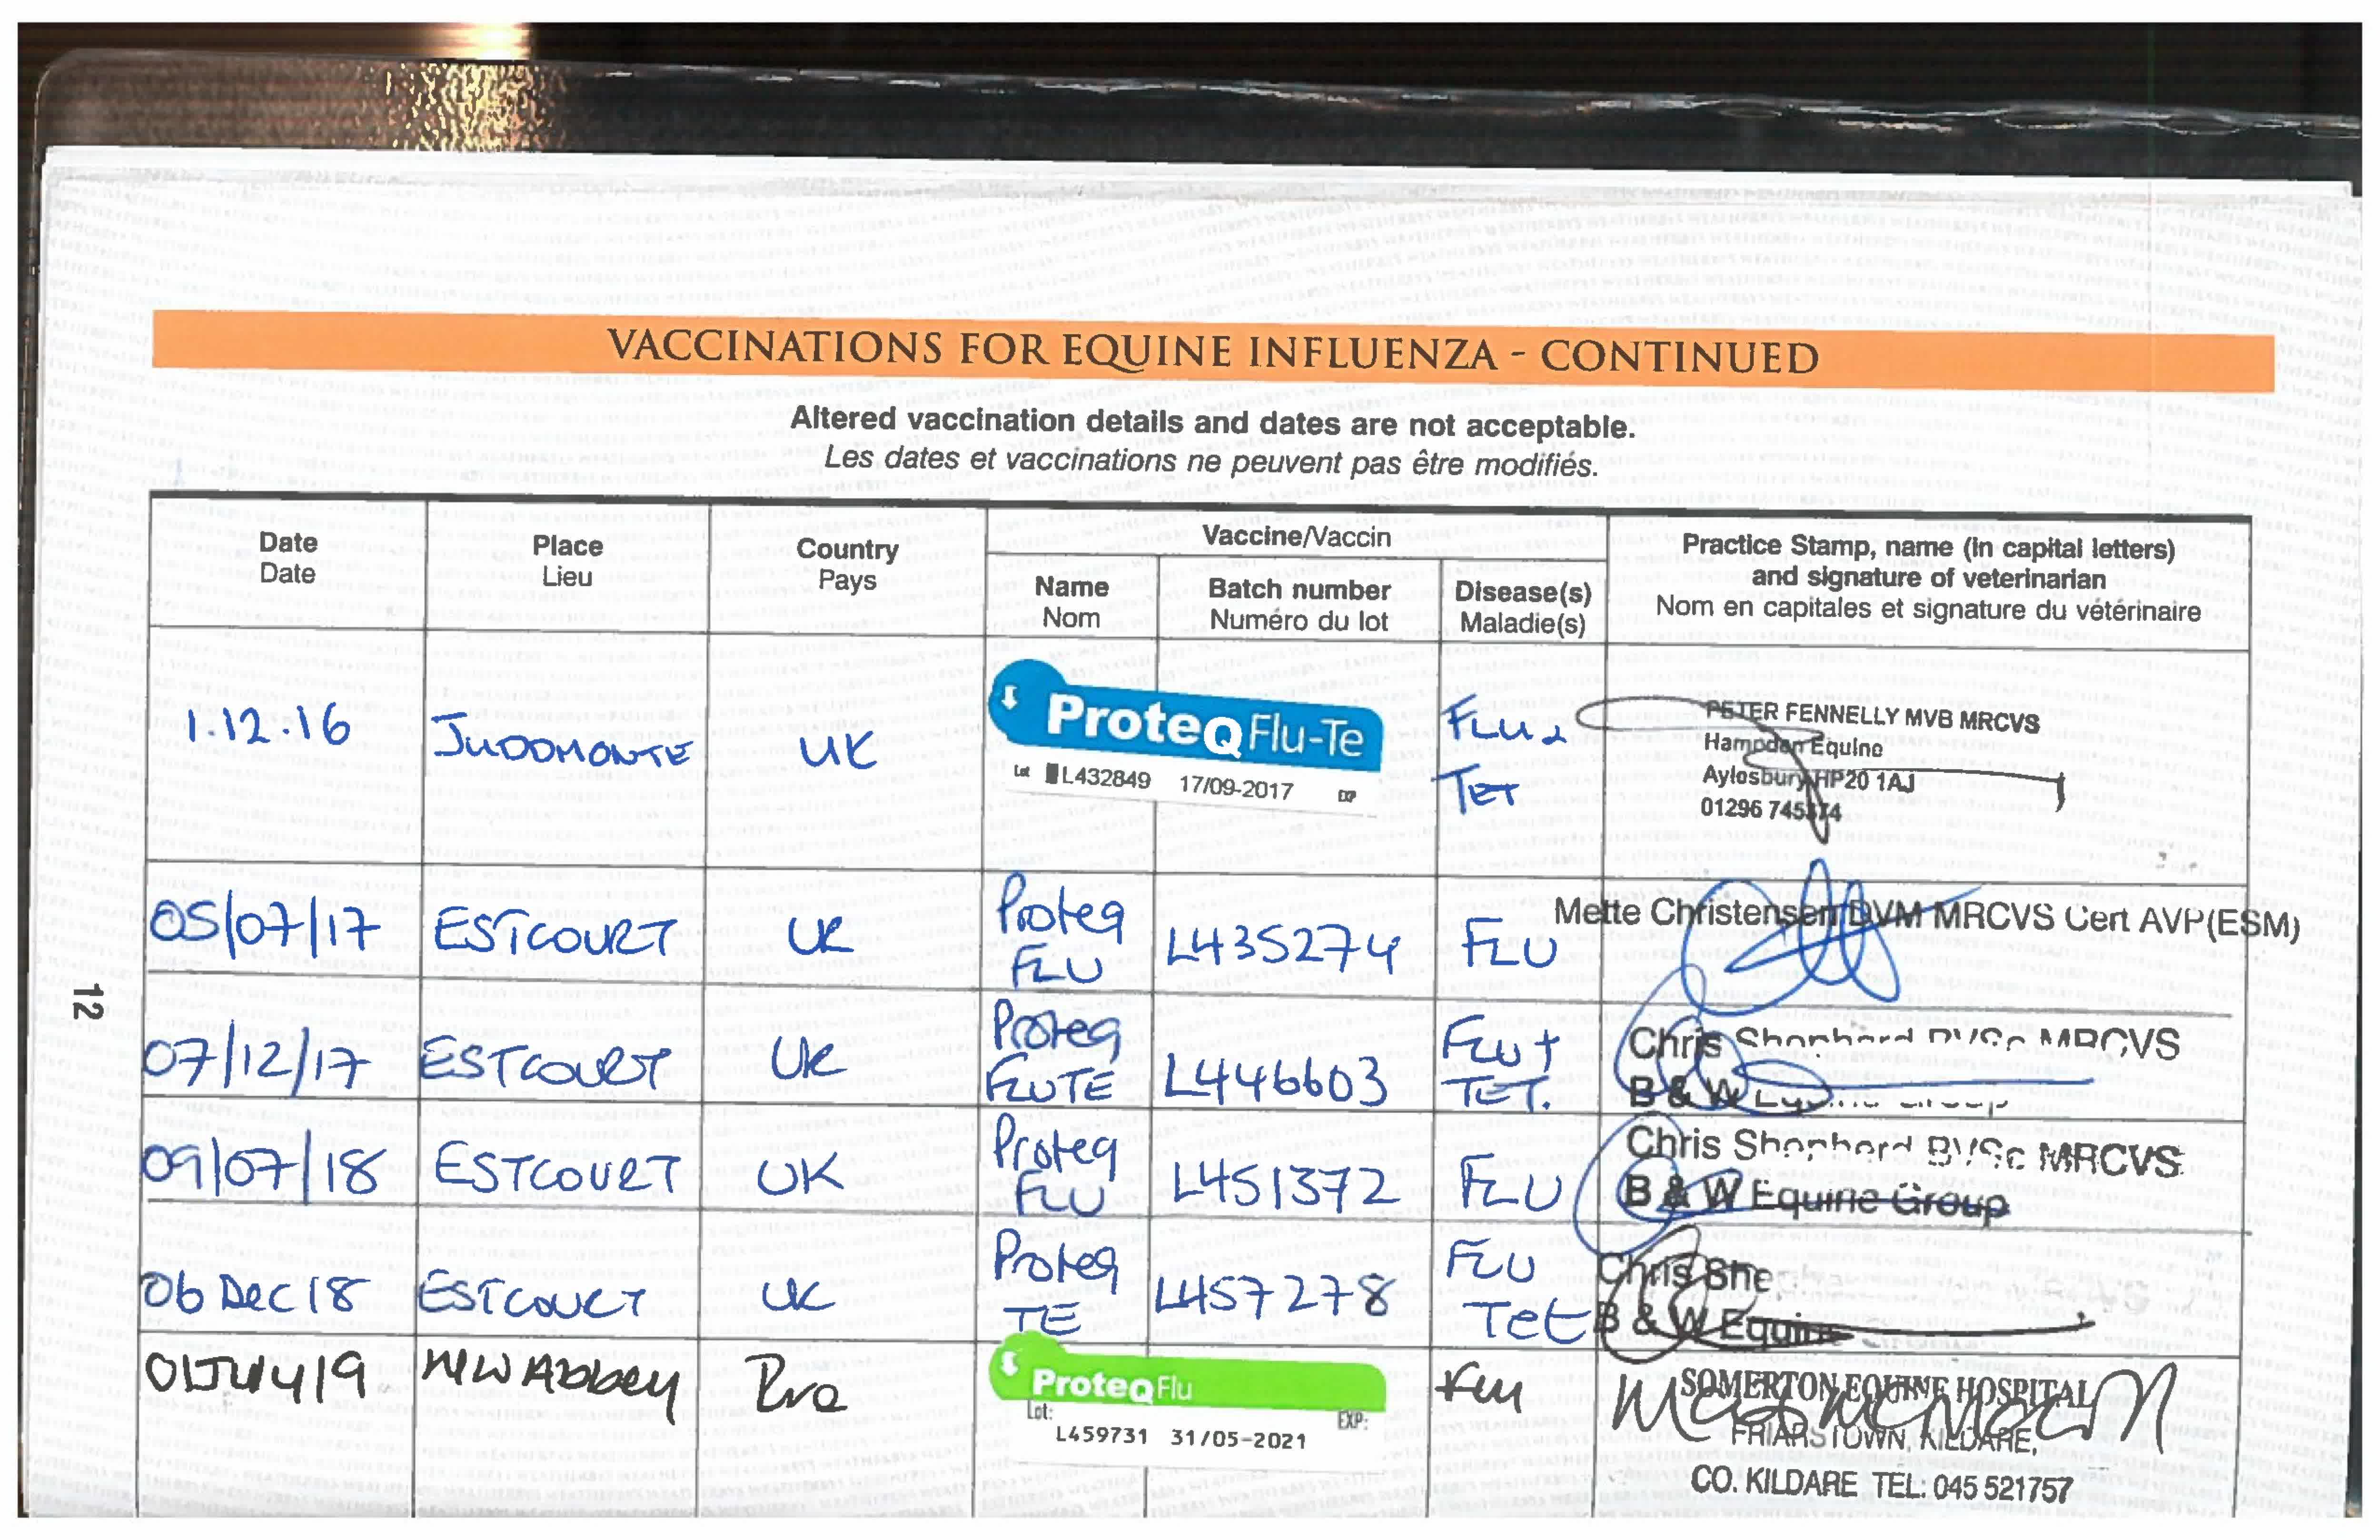 VACCINATIONS FOR EQUINE INFLUENZA - CONTINUED
Altered vaccination details and dates are not acceptable.
Les dates et vaccinations ne peuvent pas être modifiés.
Date Place Country Vaccine/Vaccin Practice Stamp, name (in capital letters)
Date Lieu Pays and signature of veterinarian
Name Batch number Disease(s) Nom en capitales et signature du vétérinaire
Nom Numéro du lot Maladie(s)
1.12.16 JUDDMONTE UK ProteqFlu-Te FLU & PETER FENNELLY MVB MRCVS
Hampden Equine
Lot L432849 17/09-2017 EXP TET Aylesbury HP20 1AJ
01296 745
05/07/17 ESTCOURT UK Proteq L435274 FLU Mette Christensen DVM MRCVS Cert AVP(ESM)
FLU
12
07/12/17 ESTCOURT UK Proteq L446603 FLU + Chris MRCVS
FLUTE TET. B & W
09/07/18 ESTCOURT UK Proteq L451372 FLU Chris Shepherd BVSc MRCVS
FLU B & W Equine Group
06 Dec 18 ESTCOURT UK Proteq L457278 FLU Chris She
TE Tet B & W Equine
01July19 Abbey ProteqFlu Flu SOMERTON EQUINE HOSPITAL
Lot: EXP: FRIARSTOWN, KILDARE,
L459731 31/05-2021
CO. KILDARE TEL: 045 521757